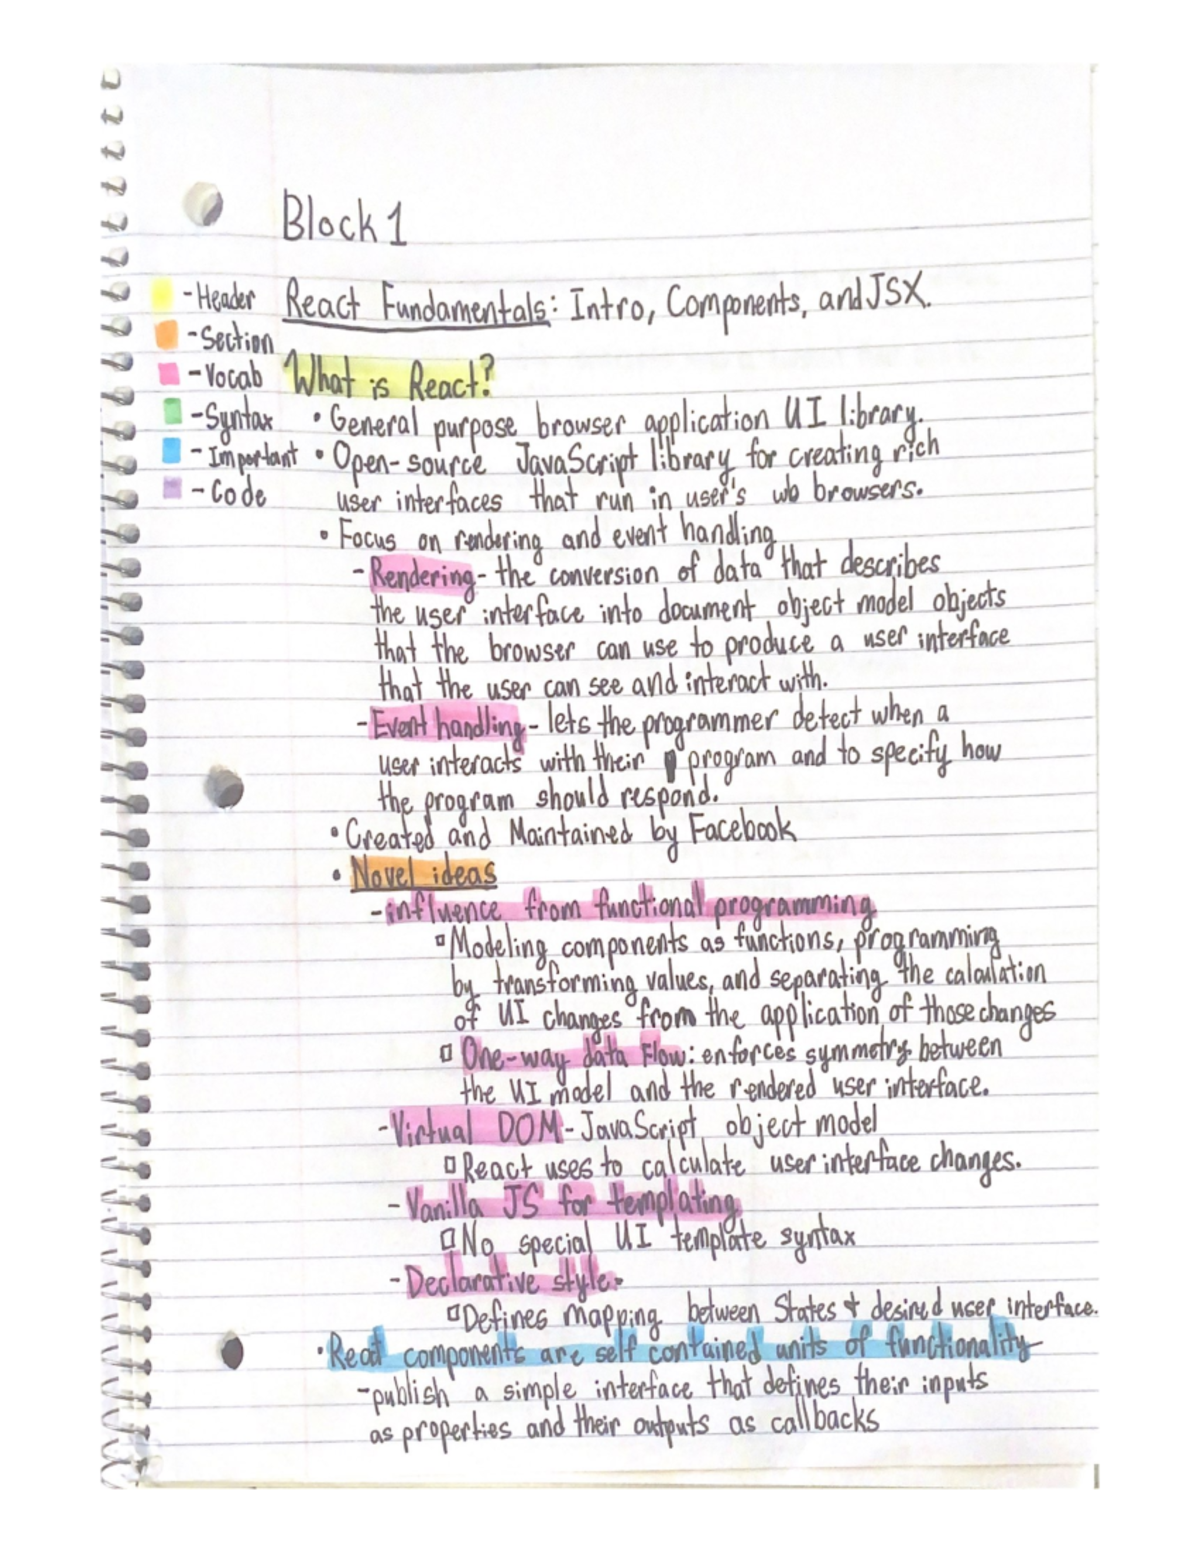 Block 1
- Header
React Fundamentals: Intro, Components, and JSX.
- Section
- Vocab
What is React?
- Syntax
• General purpose browser application UI library.
- Important
• Open-source JavaScript library for creating rich
- Code
user interfaces that run in user's wb browsers.
• Focus on rendering and event handling
- Rendering - the conversion of data that describes
the user interface into document object model objects
that the browser can use to produce a user interface
that the user can see and interact with.
- Event handling - lets the programmer detect when a
user interacts with their program and to specify how
the program should respond.
• Created and Maintained by Facebook
• Novel ideas
- influence from functional programming
▫ Modeling components as functions, programming
by transforming values, and separating the calculation
of UI changes from the application of those changes
▫ One-way data Flow: enforces symmetry between
the UI model and the rendered user interface.
- Virtual DOM - JavaScript object model
▫ React uses to calculate user interface changes.
- Vanilla JS for templating
▫ No special UI template syntax
- Declarative style-
▫ Defines mapping between States & desired user interface.
• React components are self contained units of functionality
- publish a simple interface that defines their inputs
as properties and their outputs as callbacks